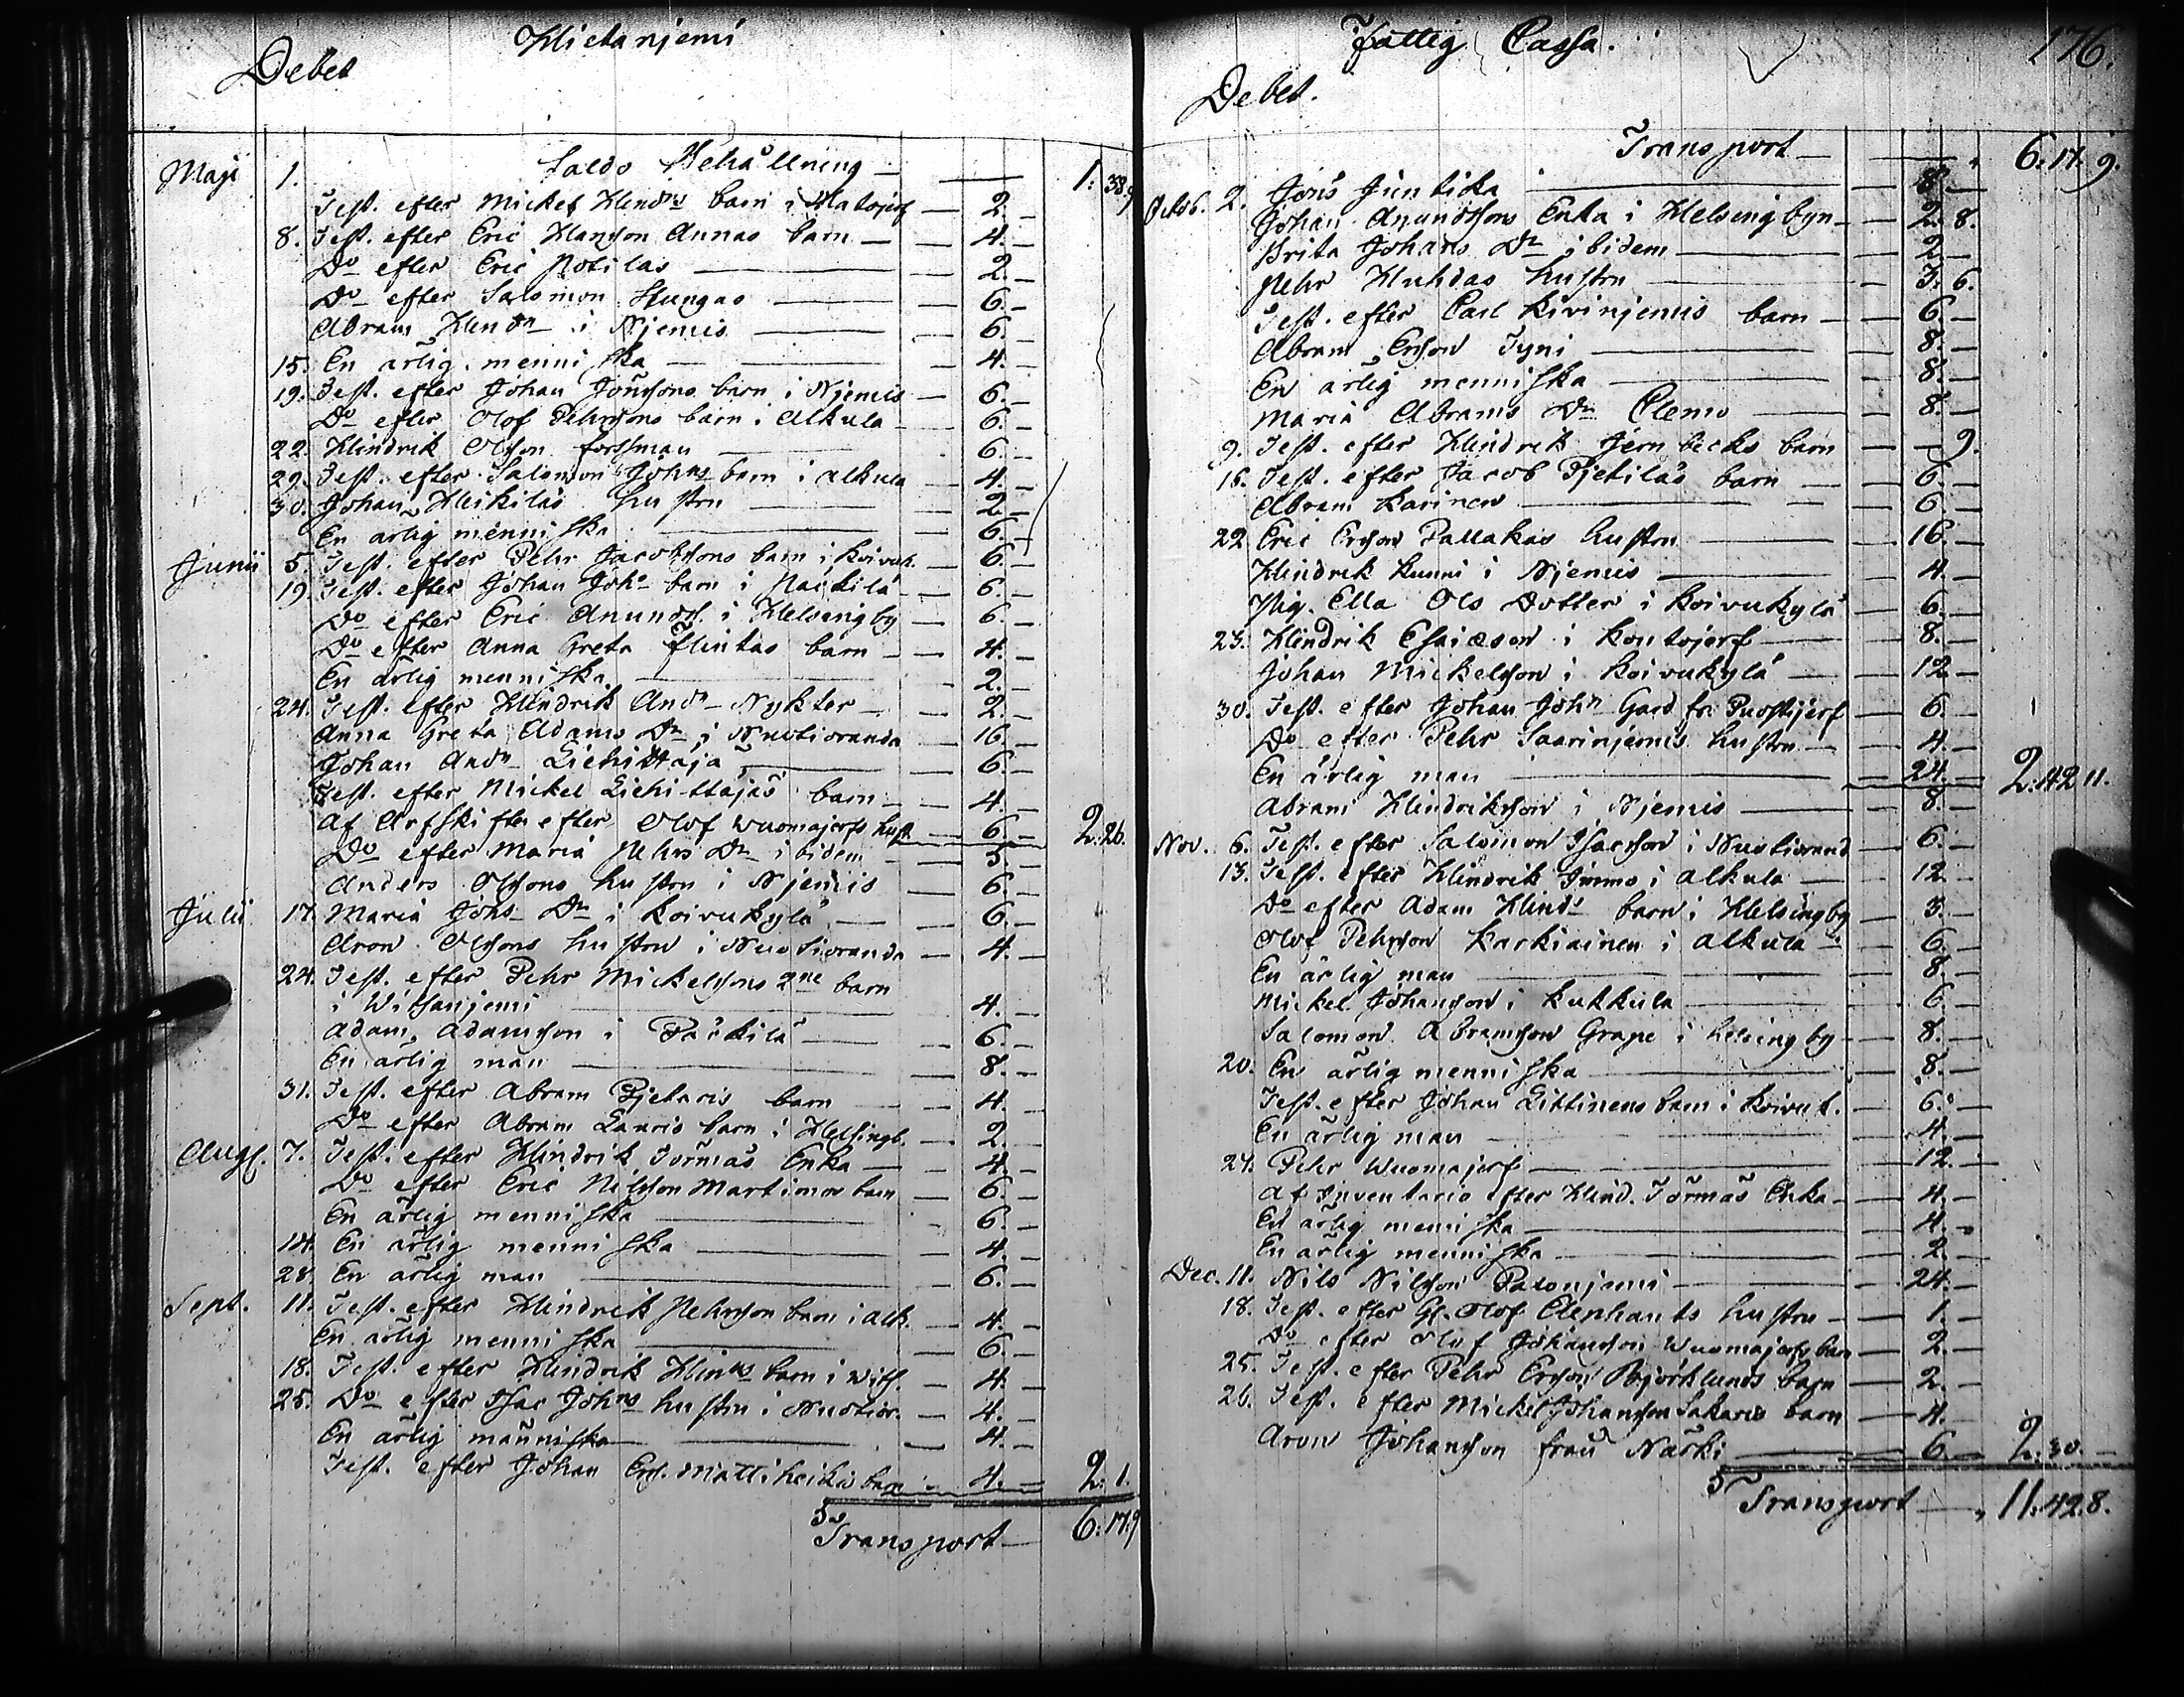 Hietanjemi
Debet
Maji 1. Saldo Behållning — 1: 38 9
Test. efter Mickel Hendrs barn i Matojerf — 2. —
8. Test. efter Eric Hansson Annas barn — 4. —
Do efter Eric Notilas — 2. —
Do efter Salomon Stungas — 6. —
Abram Hendn i Njemis — 6. —
15. En ärlig menniska — 4. —
19. Test. efter Johan Jönssons barn i Njemis — 6. —
Do efter Olof Pehrsons barn i Alkula — 6. —
22. Hindrik Olsson Forssman — 6. —
29. Test. efter Salomon Johns barn i Alkula — 4. —
30. Johan Heikilas hustru — 2. —
En ärlig menniska — 6. —
Junii 5. Test. efter Pehr Jacobssons barn i Koivuk. — 6. —
19. Test. efter Johan Johs barn i Päckilä — 6. —
Do efter Eric Anunds. i Helsingby — 6. —
Do efter Anna Greta Flintas barn — 4. —
En ärlig menniska — 2. —
24. Test. efter Hindrik Andn Nykter — 2. —
Anna Greta Adams Dr i Nuotioranda — 16. —
Johan Andn Liehittäjä — 6. —
Test. efter Mickel Liehittäjäs barn — 4. —
Af Arfskifte efter Olof Wuomajerfs hust. — 6. — 2: 26.
Do efter Maria Pehrs Dr ibidem — 5. —
Anders Olssons hustru i Njemis — 6. —
Julii 17. Maria Johs Dr i Koivukylä — 6. —
Aron Olssons hustru i Nuotioranda — 4. —
24. Test. efter Pehr Mickelssons 2ne barn
i Witsanjemi — 4. —
Adam Adamsson i Päckilä — 6. —
En ärlig man — 8. —
31. Test. efter Abram Pjetaris barn — 4. —
Do efter Abram Lauris barn i Helsingb. — 2. —
Aug. 7. Test. efter Hindrik Törmäs Enka — 4. —
Do efter Eric Nilsson Martimos barn — 6. —
En ärlig menniska — 6. —
14. En ärlig menniska — 4. —
28. En ärlig man — 6. —
Sept. 11. Test. efter Hindrik Pehrsson barn i alk. — 4. —
En ärlig menniska — 6. —
18. Test. efter Hindrik Hinrs barn i Wits. — 4. —
25. Do efter Isac Johns hustru i Nuotior. — 4. —
En ärlig människa — 4. —
Test. efter Johan Ers. Mattiheikis barn — 4. — 2: 1.
Transport — 6: 17: 9
Fattig Cassa.
176.
Debet.
Transport — 6: 17: 9.
Octob. 2. Jöns Junticka — 8. —
Johan Anundssons Enka i Helsingbyn — 2: 8.
Brita Johans Dr ibidem — 2. —
Pehr Huhdas hustru — 3: 6.
Test. efter Carl Kivinjemis barn — 6. —
Abram Ersson Tyni — 8. —
En ärlig menniska — 8. —
Maria Abrams Dr Clemo — 8. —
9. Test. efter Hindrik Jernbecks barn — 9.
16. Test. efter Jacob Pjetiläs barn — 6. —
Abram Karinen — 6. —
22. Eric Ersson Pallakas hustru — 16. —
Hindrik Kunni i Njemis — 4. —
Pig. Ella Ols Dotter i Koivukylä — 6. —
23. Hindrik Esaiæson i Koutojerf — 8. —
Johan Mickelsson i Koivukylä — 12. —
30. Test. efter Johan John Gard fr. Puostijerf — 6. —
Do efter Pehr Saarinjemis hustru — 4. —
En ärlig man — 24. — 2: 42 11.
Abram Hindriksson i Njemis — 8. —
Nov. 6. Test. efter Salomon Isacsson i Nuotiorand — 6. —
13. Test. efter Hindrik Jimmo i Alkula — 12. —
Do efter Adam Hinds barn i Helsingby — 3. —
Olof Pehrsson Karkiainen i Alkula — 6. —
En ärlig man — 8. —
Mickel Johansson i Kukkula — 6. —
Salomon Abramsson Grape i helsingby — 8. —
20. En ärlig menniska — 8. —
Test. efter Johan Littinens barn i Koivuk. — 6. —
En ärlig man — 4. —
27. Pehr Wuomajerf — 12. —
Af Inventario efter Hind. Törmäs Enka — 4. —
En ärlig menniska — 4. —
En ärlig menniska — 2. —
Dec. 11. Nils Nilsson Palonjemi — 24. —
18. Test. efter Gl. Olof Elenhants hustru — 1. —
Do efter Olof Johansson Wuomajerfs barn — 2. —
25. Test. efter Pehr Ersson Björklunds barn — 2. —
26. Test. efter Mickel Johansson Sakaris barn — 4. —
Aron Johansson från Närki — 6. — 2: 30. —
Transport — 11: 42 8.